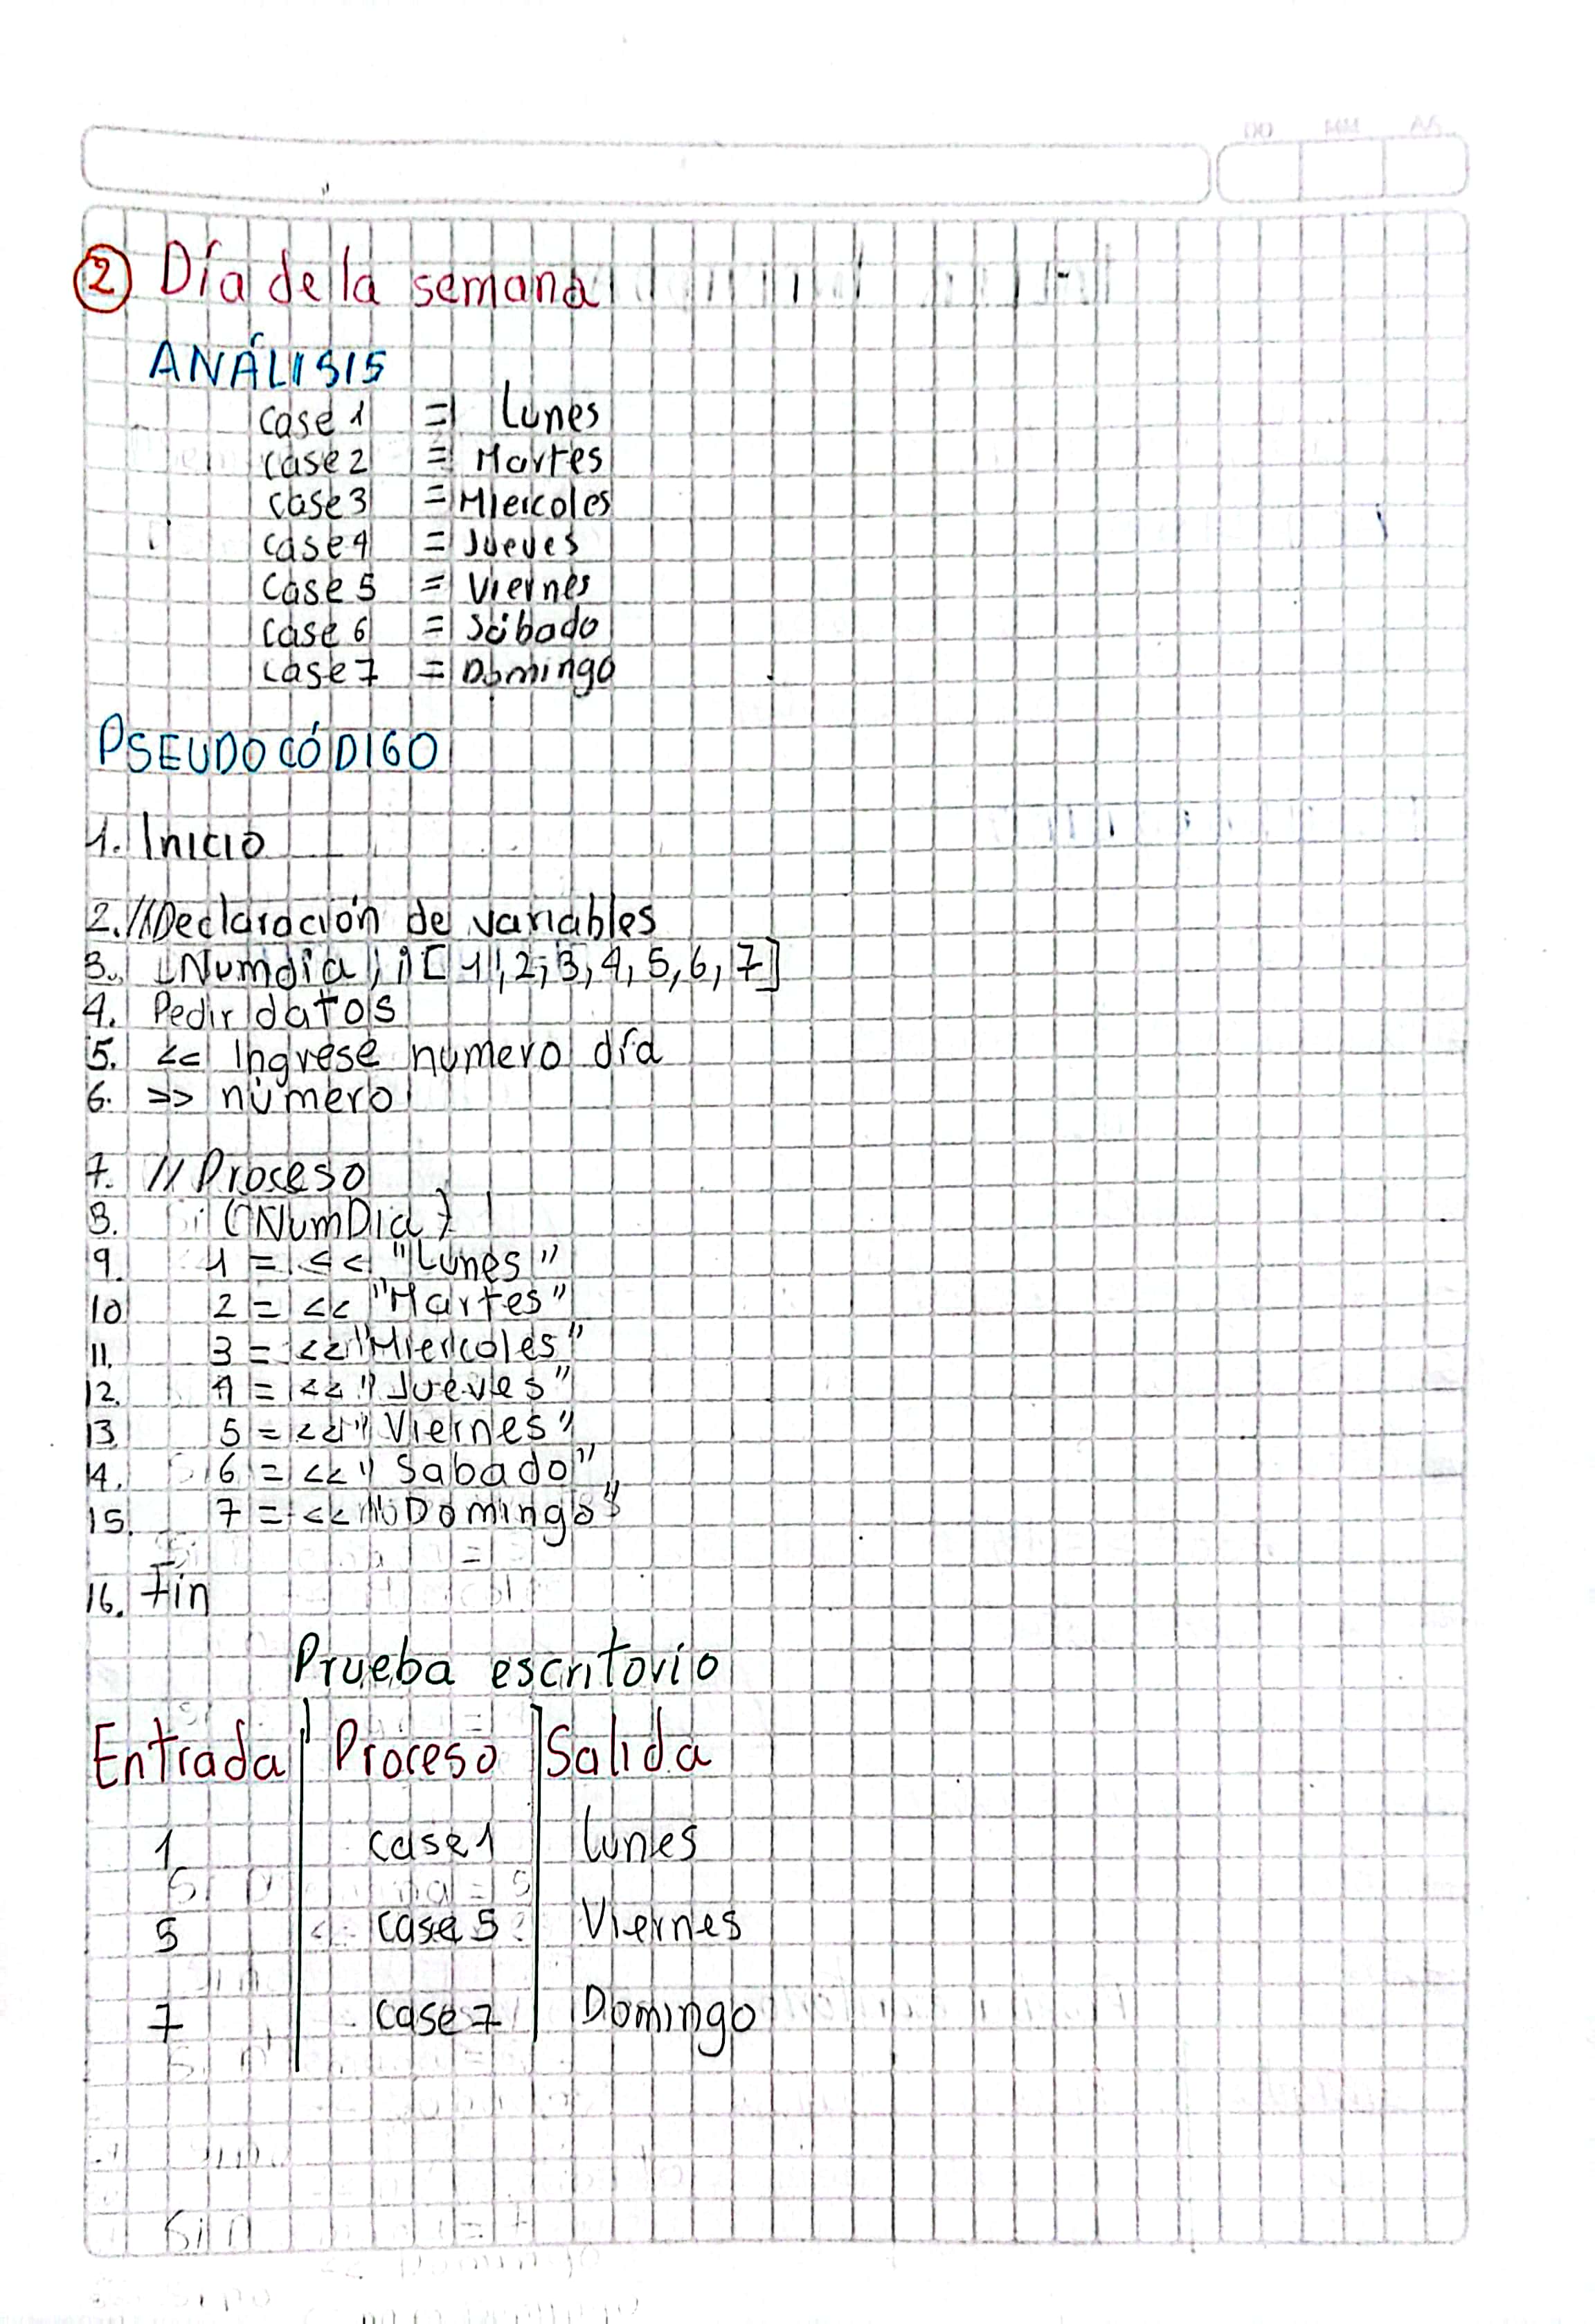 ② Día de la semana
ANÁLISIS
case 1 = Lunes
case 2 = Martes
case 3 = Miercoles
case 4 = Jueves
case 5 = Viernes
case 6 = Sábado
case 7 = Domingo
PSEUDOCÓDIGO
1. Inicio
2. // Declaración de variables
3. Numdia, [1, 2, 3, 4, 5, 6, 7]
4. Pedir datos
5. << Ingrese numero día
6. >> número
7. // Proceso
8. (NumDia)
9. 1 = << "Lunes"
10 2 = << "Martes"
11. 3 = << "Miercoles"
12. 4 = << "Jueves"
13 5 = << "Viernes"
14. 6 = << "Sabado"
15. 7 = << "Domingo"
16. Fin
Prueba escritorio
Entrada Proceso Salida
1 case 1 Lunes
5 case 5 Viernes
7 case 7 Domingo